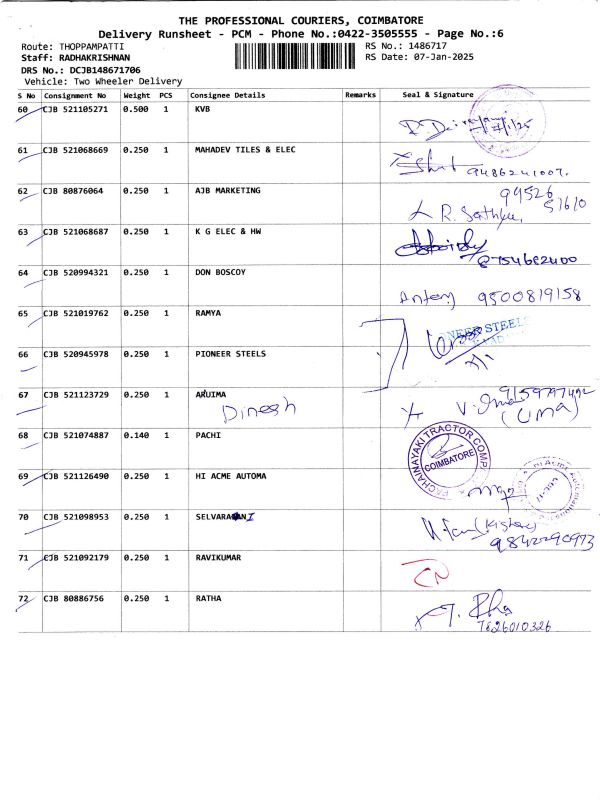 THE PROFESSIONAL COURIERS, COIMBATORE
Delivery Runsheet - PCM - Phone No.:0422-3505555 - Page No.:6
Route: THOPPAMPATTI RS No.: 1486717
Staff: RADHAKRISHNAN RS Date: 07-Jan-2025
DRS No.: DCJB148671706
Vehicle: Two Wheeler Delivery
S No Consignment No Weight PCS Consignee Details Remarks Seal & Signature
60 CJB 521105271 0.500 1 KVB
61 CJB 521068669 0.250 1 MAHADEV TILES & ELEC
9486241007.
62 CJB 80876064 0.250 1 AJB MARKETING 99526
51610
R. Sathku
63 CJB 521068687 0.250 1 K G ELEC & HW
64 CJB 520994321 0.250 1 DON BOSCOY
Antony 9500819158
65 CJB 521019762 0.250 1 RAMYA
66 CJB 520945978 0.250 1 PIONEER STEELS
NEER STEELS
67 CJB 521123729 0.250 1 ARUIMA
Dinesh
V. Uma (UMA)
68 CJB 521074887 0.140 1 PACHI
PACHAINAYAKI TRACTOR COMP
COIMBATORE
69 CJB 521126490 0.250 1 HI ACME AUTOMA
70 CJB 521098953 0.250 1 SELVARANI
(Kishor)
71 CJB 521092179 0.250 1 RAVIKUMAR
72 CJB 80886756 0.250 1 RATHA
7626010326